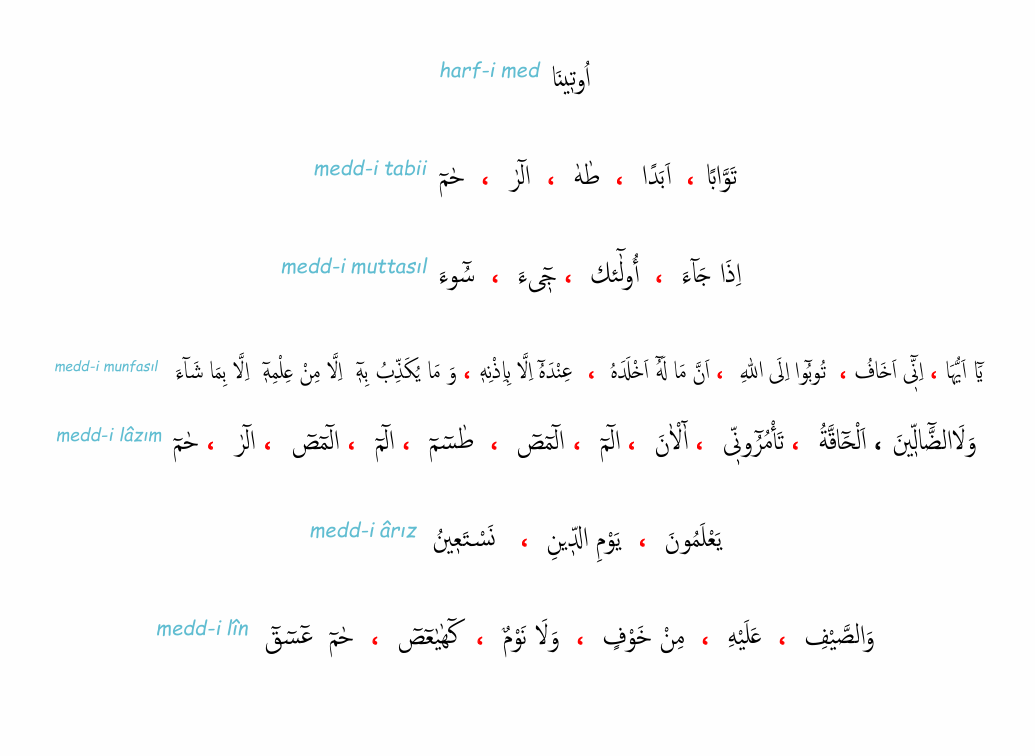 اُوتٖينَا harf-i med
تَوَّابًا ، اَبَدًا ، طٰهٰ ، الٓرٰ ، حٰمٓ medd-i tabii
اِذَا جَٓاءَ ، أُولٰٓئك ، جٖٓىءَ ، سُٓوءَ medd-i muttasıl
يَٓا اَيُّهَا ، اِنّٖٓى اَخَافُ ، تُوبُٓوا اِلَى اللهِ ، اَنَّ مَا لَهُٓ اَخْلَدَهُ ، عِنْدَهُٓ اِلَّا بِاِذْنِهٖ ، وَ مَا يُكَذِّبُ بِهٖٓ اِلَّا مِنْ عِلْمِهٖٓ اِلَّا بِمَا شَٓاءَ medd-i munfasıl
وَلَاالضَّٓالّٖينَ ، اَلْحَٓاقَّةُ ، تَأْمُرُٓونّٖى ، آٰلْاٰنَ ، الٓمٓ ، الٓمٓصٓ ، طٰسٓمٓ ، الٓمٓ ، الٓمٓصٓ ، الٓرٰ ، حٰمٓ medd-i lâzım
يَعْلَمُونَ ، يَوْمِ الدّٖينِ ، نَسْتَعٖينُ medd-i ârız
وَالصَّيْفِ ، عَلَيْهِ ، مِنْ خَوْفٍ ، وَلَا نَوْمٌ ، كٓهٰيٰعٓصٓ ، حٰمٓ عٓسٓقٓ medd-i lîn